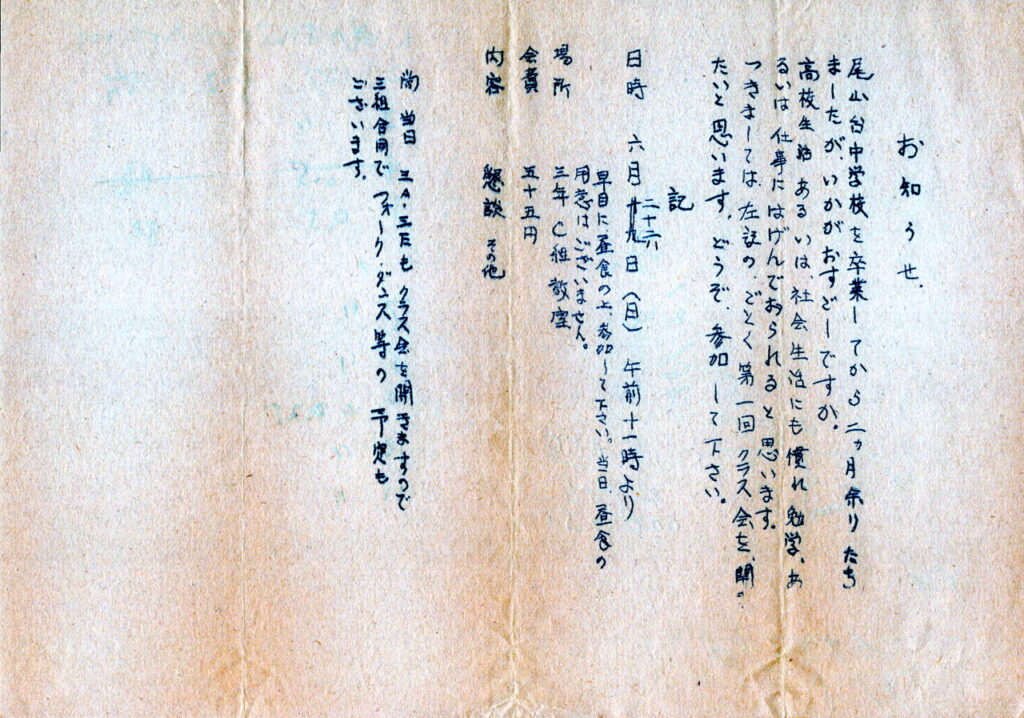 お知らせ.
尾山台中学校を卒業してから二ヵ月余りたち
ましたが、いかがおすごしですか。
高校生活あるいは、社会生活にも慣れ勉学、あ
るいは仕事にはげんでおられると思います。
つきましては、左記の、ごとく第一回クラス会を、開き
たいと思います。どうぞ、参加して下さい。
記
二十六
日時 六月廿九日(日) 午前十一時より
早目に昼食の上、参加して下さい。当日、昼食の
用意はございません。
場所 三年C組教室
会費 五十五円
内容 懇談 その他
尚 当日 三A・三Eも クラス会を開きますので
三組合同で フォーク・ダンス等の 予定も
ございます。